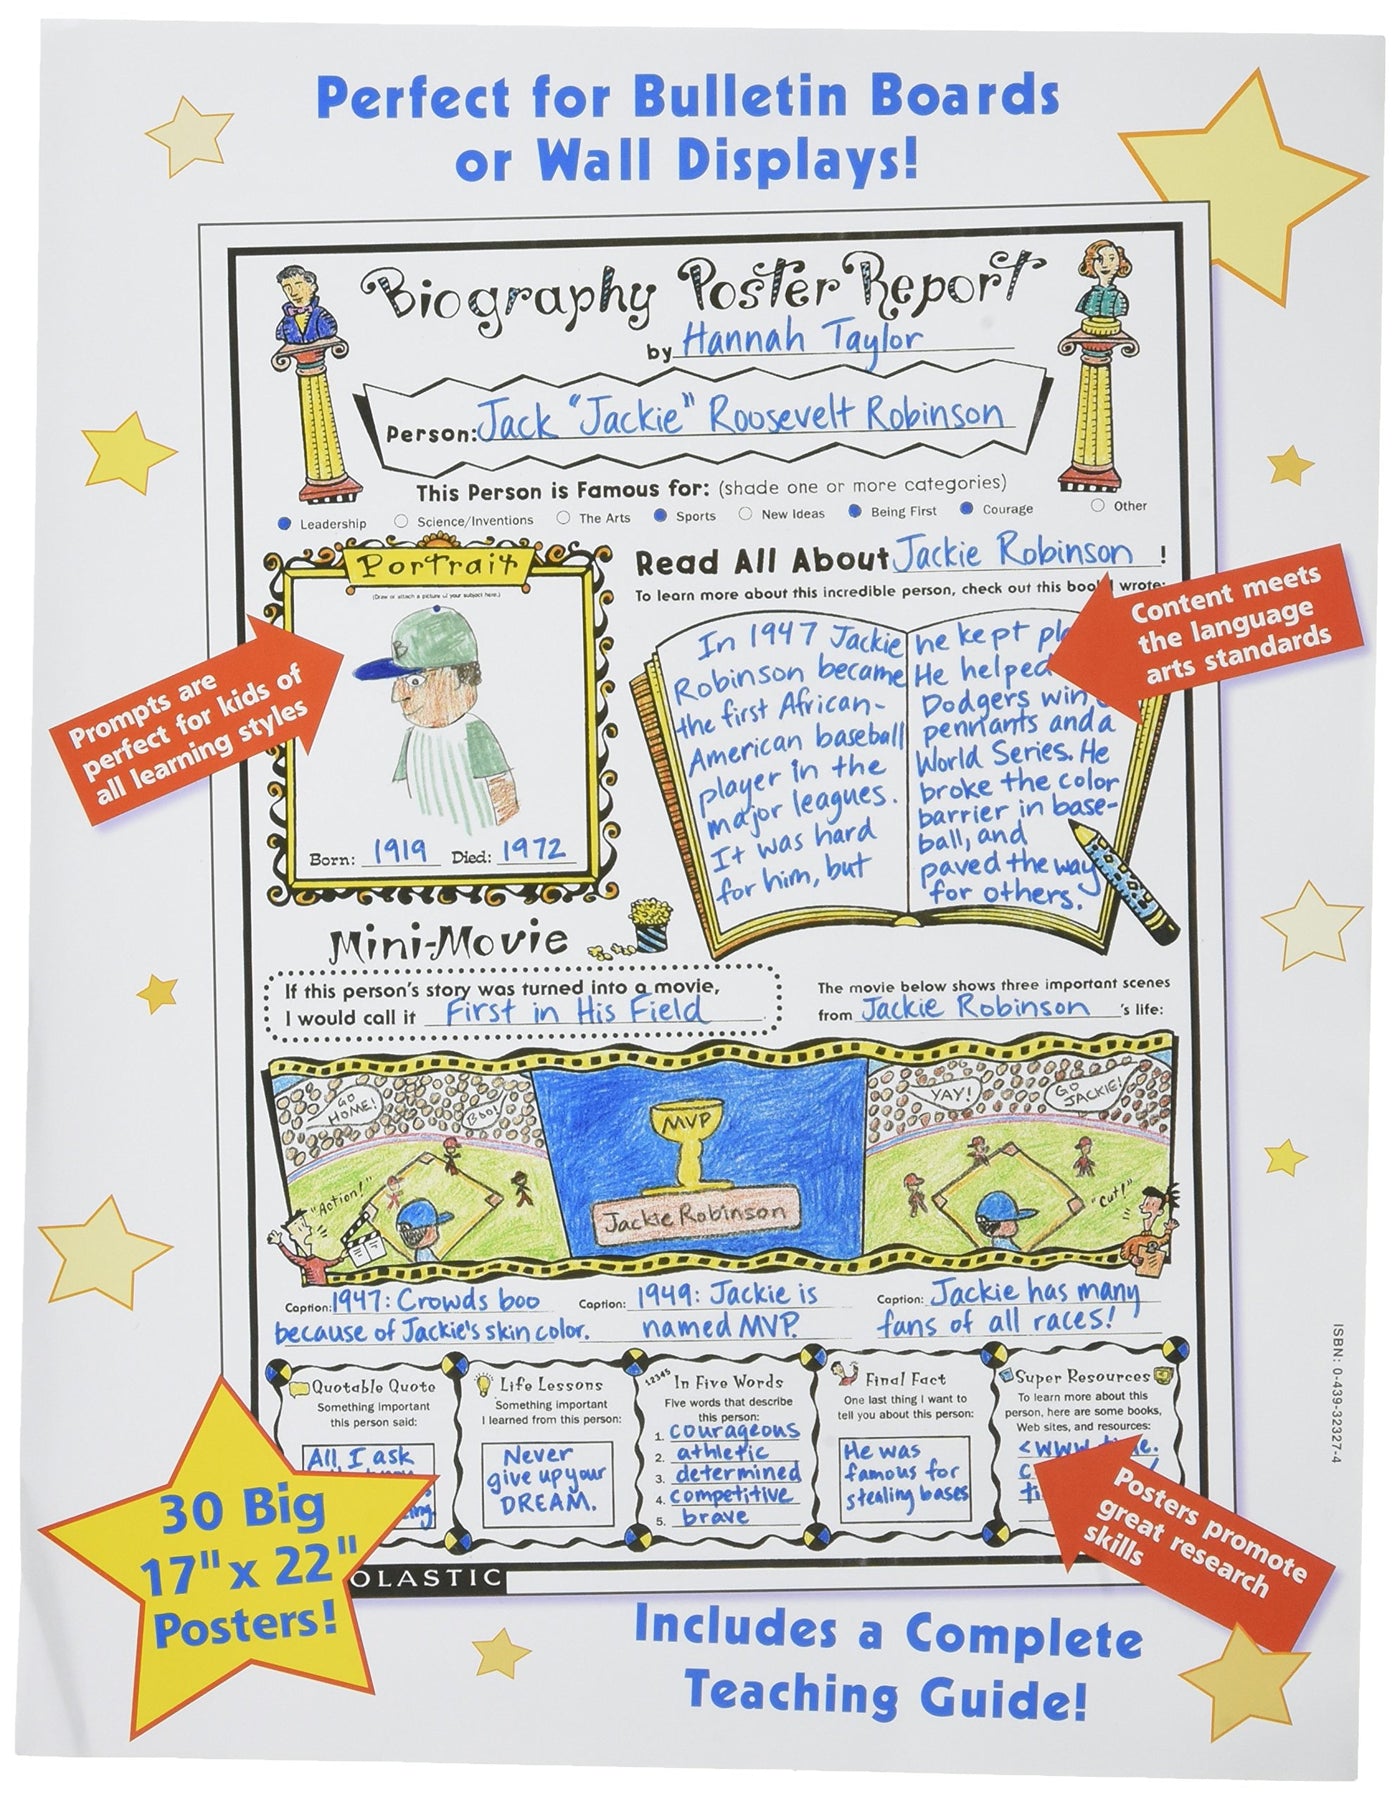 Perfect for Bulletin Boards
or Wall Displays!
Biography Poster Report
by Hannah Taylor
Person: Jack "Jackie" Roosevelt Robinson
This Person is Famous for: (shade one or more categories)
Leadership Science/Inventions The Arts Sports New Ideas Being First Courage Other
Portrait
(Draw or attach a picture of your subject here.)
Born: 1919 Died: 1972
Prompts are
perfect for kids of
all learning styles
Read All About Jackie Robinson!
To learn more about this incredible person, check out this book I wrote:
Content meets
the language
arts standards
In 1947 Jackie
Robinson became
the first African-
American baseball
player in the
major leagues.
It was hard
for him, but
he kept
He helped
Dodgers win
pennants and a
World Series. He
broke the color
barrier in base-
ball, and
paved the way
for others.
Mini-Movie
If this person's story was turned into a movie,
I would call it First in His Field.
The movie below shows three important scenes
from Jackie Robinson's life:
GO
HOME!
Boo!
"Action!"
MVP
Jackie Robinson
YAY!
GO
JACKIE!
"Cut!"
Caption: 1947: Crowds boo
because of Jackie's skin color.
Caption: 1949: Jackie is
named MVP.
Caption: Jackie has many
fans of all races!
Quotable Quote
Something important
this person said:
All I ask
Life Lessons
Something important
I learned from this person:
Never
give up your
DREAM.
12345
In Five Words
Five words that describe
this person:
1. courageous
2. athletic
3. determined
4. competitive
5. brave
Final Fact
One last thing I want to
tell you about this person:
He was
famous for
stealing bases
Super Resources
To learn more about this
person, here are some books,
Web sites, and resources:
<www.
30 Big
17" x 22"
Posters!
OLASTIC
Posters promote
great research
skills
Includes a Complete
Teaching Guide!
ISBN: 0-439-32327-4